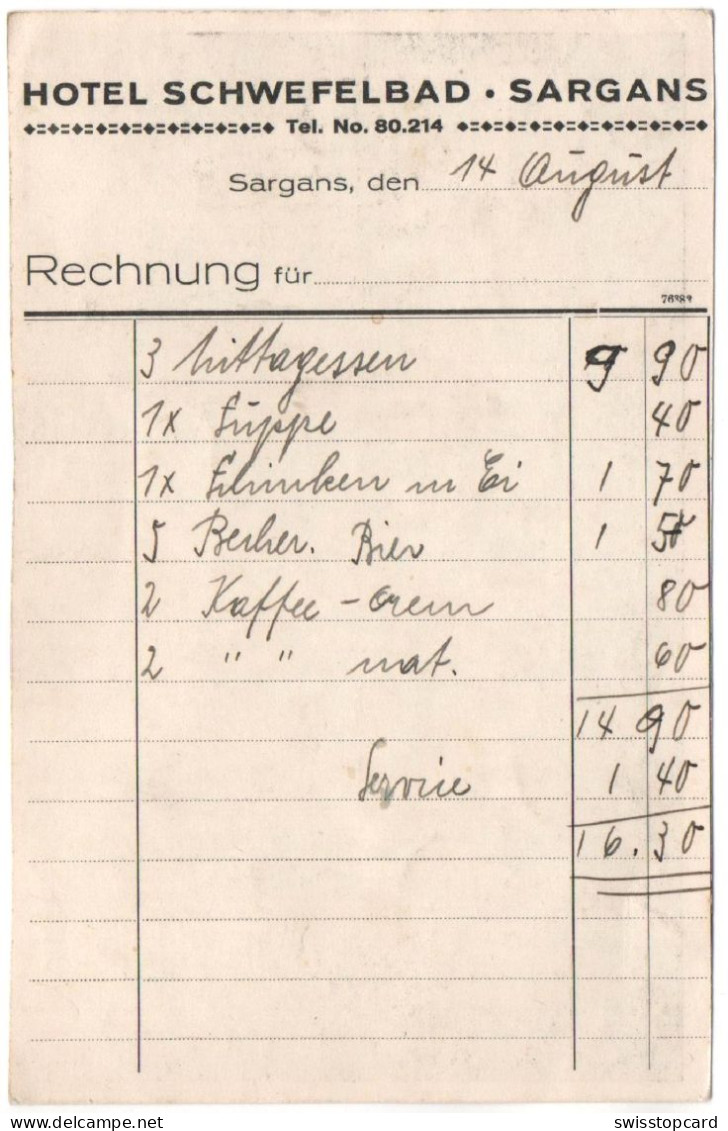 HOTEL SCHWEFELBAD • SARGANS
Tel. No. 80.214
Sargans, den 14 August
Rechnung für
3 Mittagessen 9 90
1x Suppe 40
1x Schinken m Ei 1 70
5 Becher. Bier 1 50
2 Kaffee - Crem 80
2 " " nat. 60
14 90
Service 1 40
16.30
swisstopcard